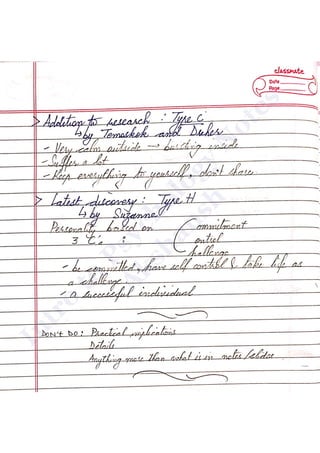 classmate
Date
Page
> Addition to research : Type C
↳ by Temoshok and Dreher
- Very calm outside → bursting inside
- Suffer a lot
- Keep everything to yourself, don't share
> Latest discovery : Type H
↳ by Suzanne
Personality based on Commitment
3 C's : Control
Challenge
- be committed, have self control & take life as
a challenge.
- a successful individual
DON'T DO : Practical implications
Details
Anything more than what is in notes/slides.